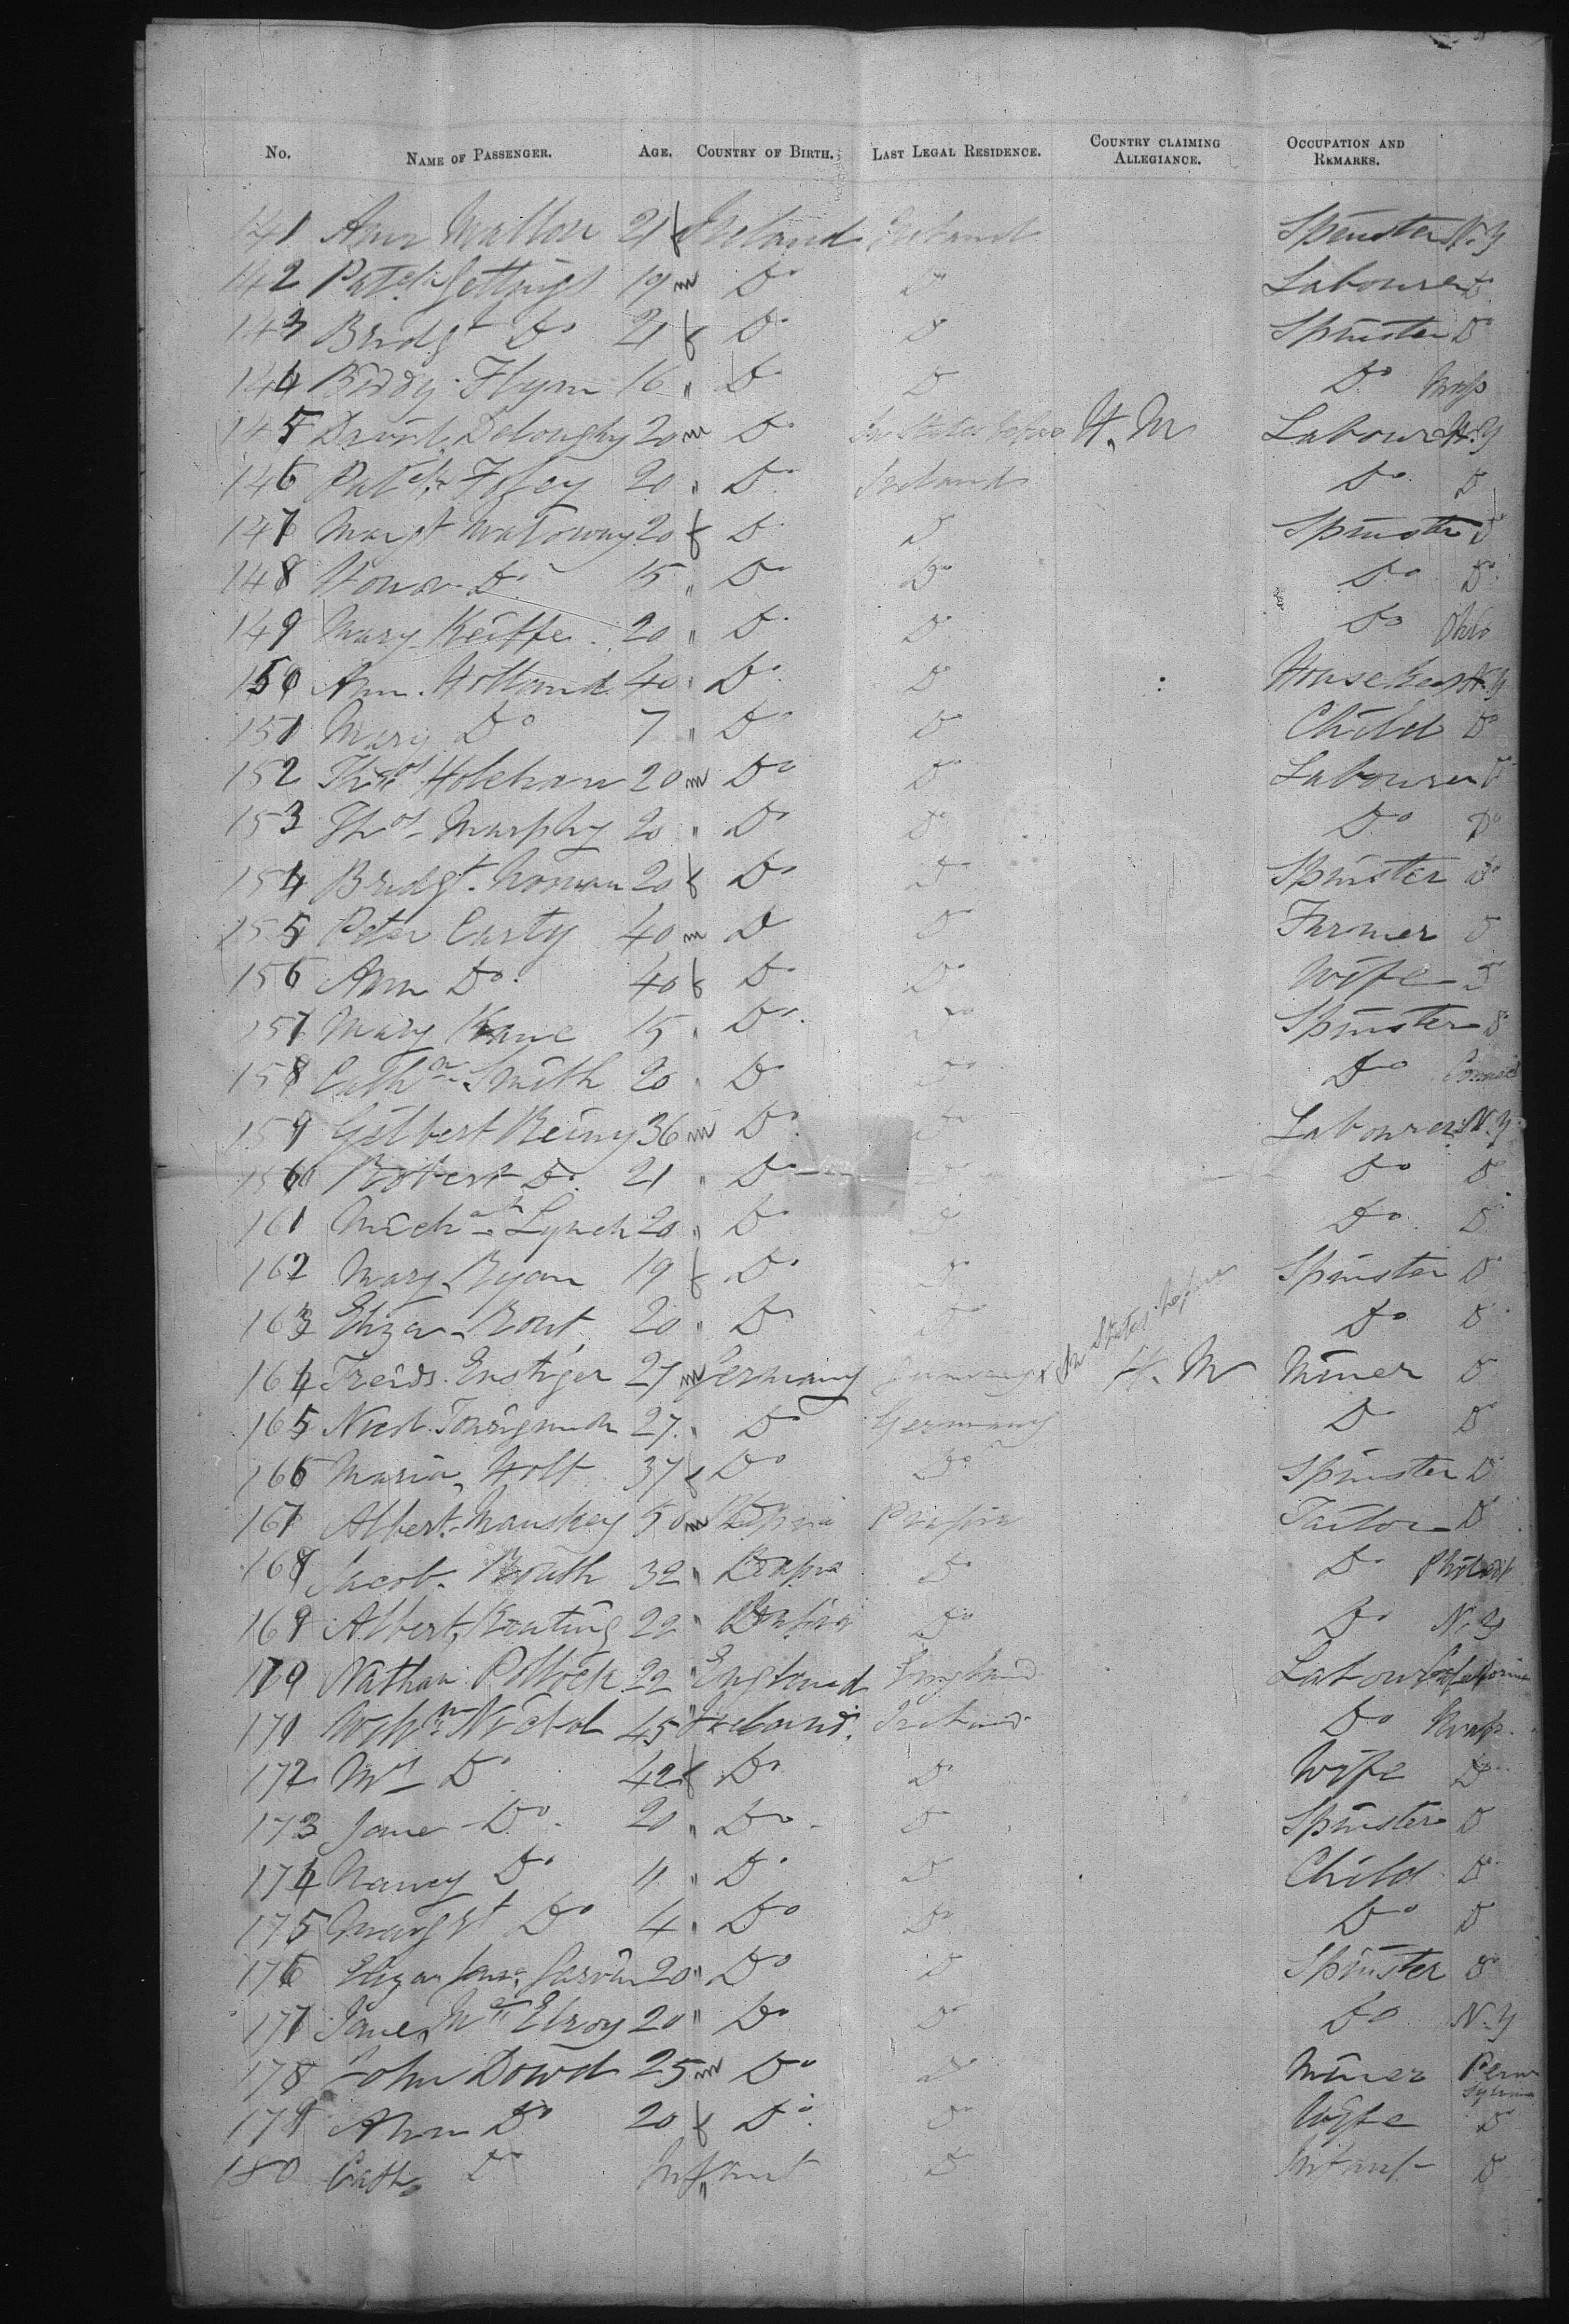 No. NAME OF PASSENGER. AGE. COUNTRY OF BIRTH. LAST LEGAL RESIDENCE. COUNTRY CLAIMING ALLEGIANCE. OCCUPATION AND REMARKS.
141 Ann Mallon 21 f Ireland Ireland Spinster N.Y
142 Patck Gettings 19 m Do Do Labourer Do
143 Bridgt Do 21 f Do Do Spinster Do
144 Biddy Flynn 16 " Do Do Do Mass
145 Danl. Deloughy 20 m Do In States before H. M Labourer N.Y
146 Patck Foley 20 " Do Ireland Do Do
147 Margt 20 f Do Do Spinster Do
148 Honor Do 15 " Do Do Do Do
149 Mary Keiffe 20 " Do Do Do Ohio
150 Ann Holland 40 " Do Do Housekeep N.Y
151 Mary Do 7 " Do Do Child Do
152 Thos Holehan 20 m Do Do Labourer Do
153 Thos Murphy 20 " Do Do Do Do
154 Bridgt. Noonan 20 f Do Do Spinster Do
155 Peter Carty 40 m Do Do Farmer Do
156 Ann Do 40 f Do Do Wife Do
157 Mary Kane 15 " Do Do Spinster Do
158 Cathn Smith 20 " Do Do Do
159 Gilbert 36 m Do Do Labourer N.Y
160 Robert Do 21 " Do Do Do Do
161 Michal Lynch 20 " Do Do Do Do
162 Mary Ryan 19 f Do Do Spinster Do
163 Eliza 20 " Do Do Do Do
164 27 m Germany Germany x In States before H. M Miner Do
165 27 " Do Germany Do Do
166 Maria Holt 37 f Do Do Spinster Do
167 Albert 50 m Prussia Tailor Do
168 Jacob 32 " Do Do
169 Albert 22 " Do Do N.Y
170 Nathan Pollock 22 " England England Labourer
171 Nichol 45 " Ireland Ireland Do Mass
172 Mrs Do 42 f Do Do Wife Do
173 Jane Do 20 " Do Do Spinster Do
174 Nancy Do 11 " Do Do Child Do
175 Margt Do 4 " Do Do Do Do
176 Eliza Jane 20 " Do Do Spinster Do
177 Jane Mc Elroy 20 " Do Do Do N.Y
178 John Dowd 25 m Do Do Miner Penn sylvania
179 Ann Do 20 f Do Do Wife Do
180 Cath Do Infant " Do Infant Do